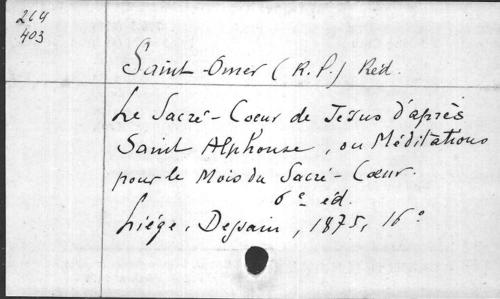 264
403
Saint-Omer (R.P.) Réd.
Le Sacré-Coeur de Jésus d'après
Saint Alphonse, ou Méditations
pour le Mois du Sacré-Coeur.
6e éd.
Liége, Dessain, 1875, 16°